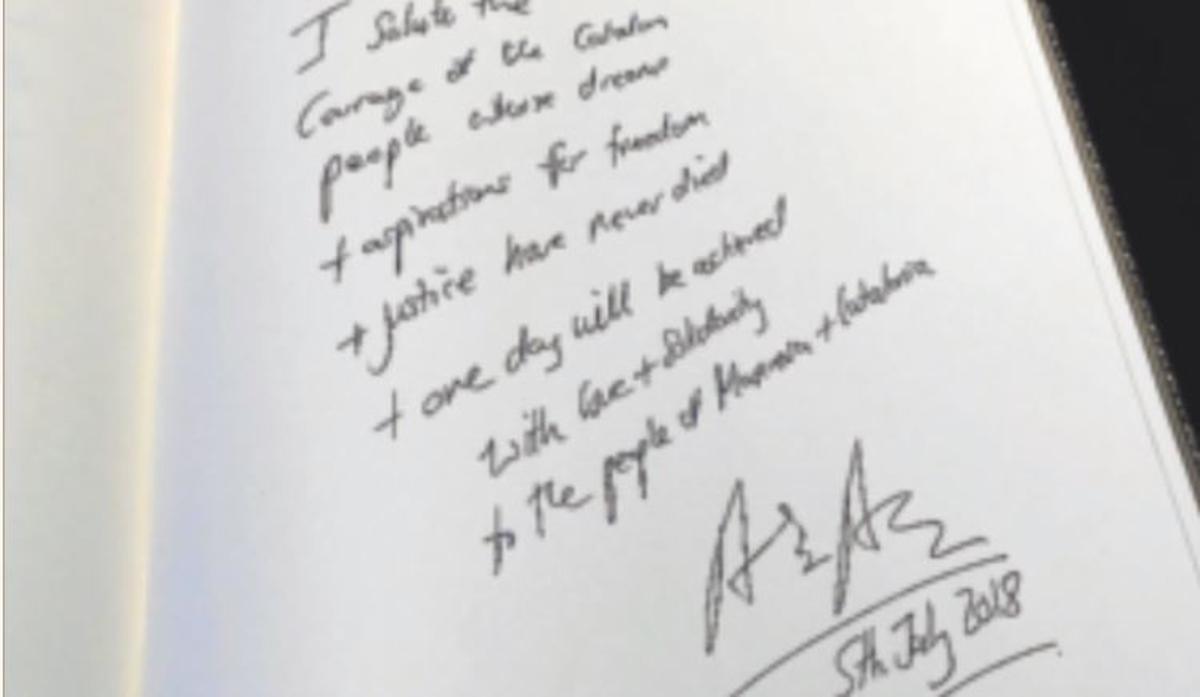 I Salute the
Courage of the Catalan
people whose dreams
+ aspirations for freedom
+ justice have never died
+ one day will be achieved
with love + solidarity
to the people of + Catalonia
5th July 2018